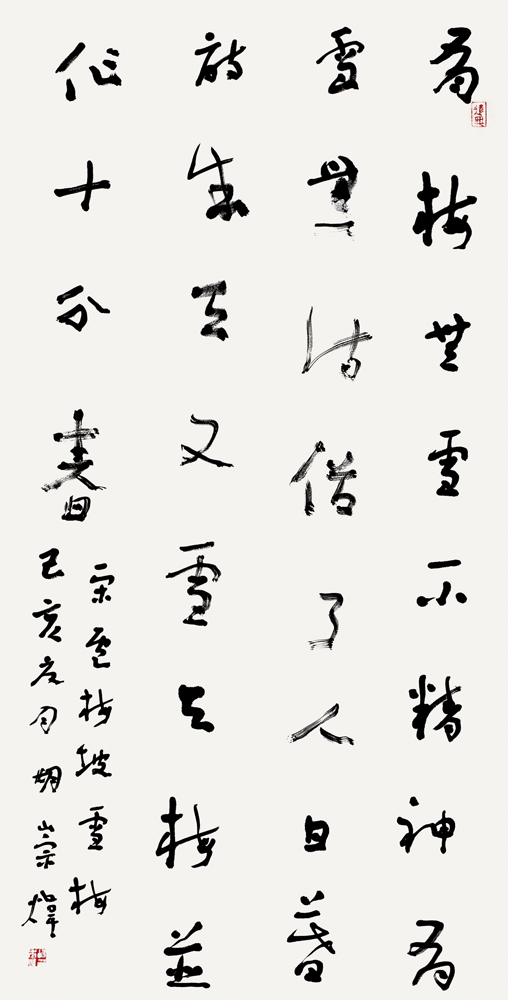 有梅無雪不精神有
雪無詩俗了人日暮
詩成天又雪与梅並
作十分春
宋盧梅坡雪梅
己亥 月胡崇煒